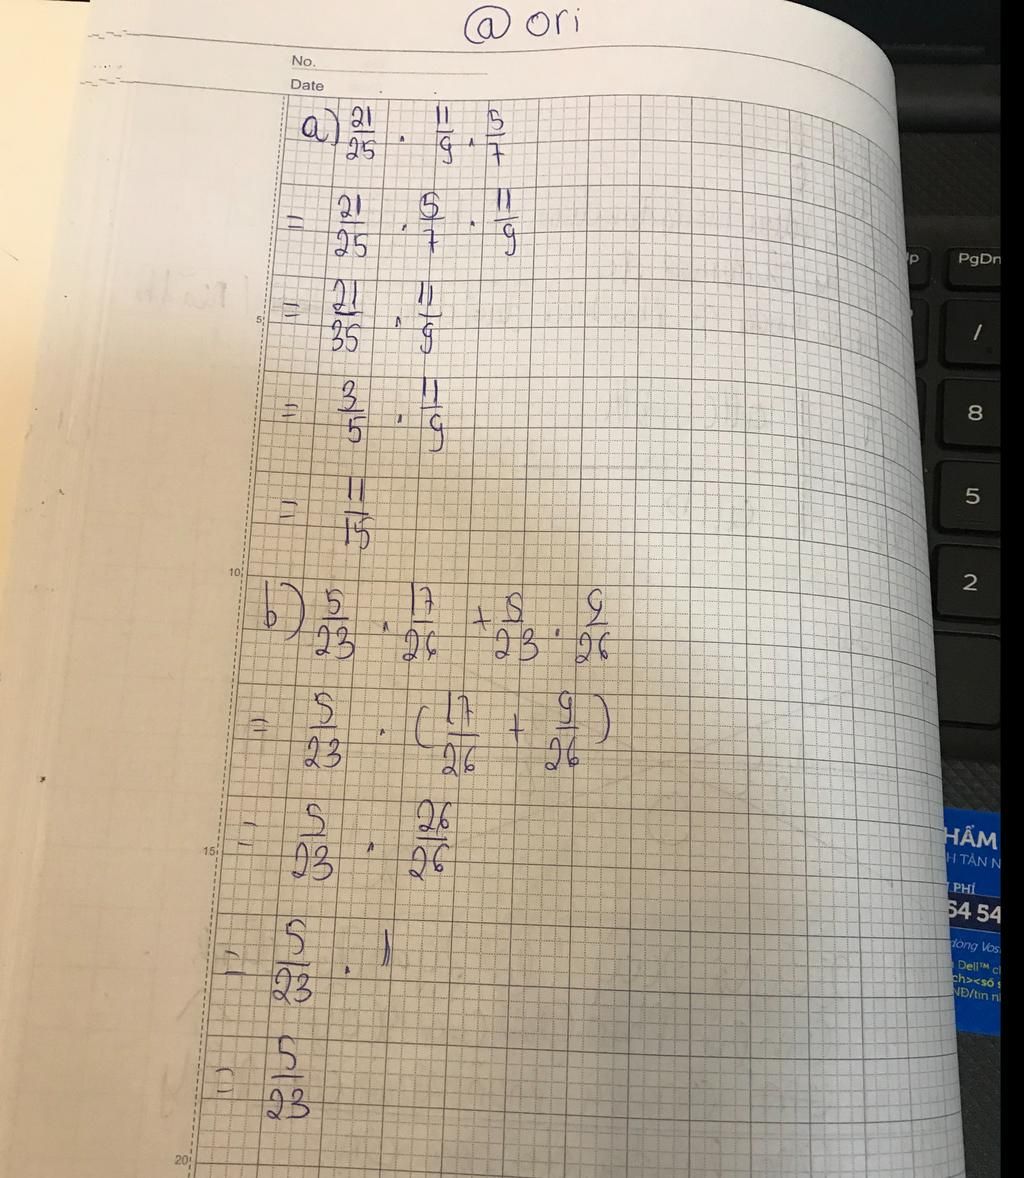 @ ori
No.
Date
a) 21/25 . 11/9 . 5/7
= 21/25 . 5/7 . 11/9
= 21/35 . 11/9
= 3/5 . 11/9
= 11/15
b) 5/23 . 17/26 + 5/23 . 9/26
= 5/23 . (17/26 + 9/26)
= 5/23 . 26/26
= 5/23 . 1
= 5/23
5
10
15
20
PgDn
/
8
5
2
HẨM
H TÂN N
PHÍ
54 54
dòng Vos
Dell™
ch><số
NĐ/tin n